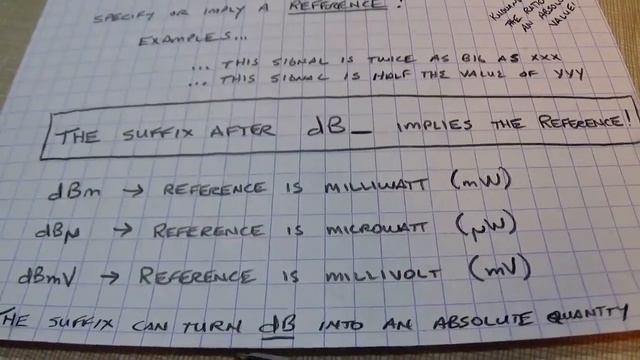 SPECIFY OR IMPLY A REFERENCE!
THE RATIO
AN ABSOLUTE
VALUE!
EXAMPLES...
... THIS SIGNAL IS TWICE AS BIG AS XXX
... THIS SIGNAL IS HALF THE VALUE OF YYY
THE SUFFIX AFTER dB_ IMPLIES THE REFERENCE!
dBm → REFERENCE IS MILLIWATT (mW)
dBμ → REFERENCE IS MICROWATT (μW)
dBmV → REFERENCE IS MILLIVOLT (mV)
THE SUFFIX CAN TURN dB INTO AN ABSOLUTE QUANTITY